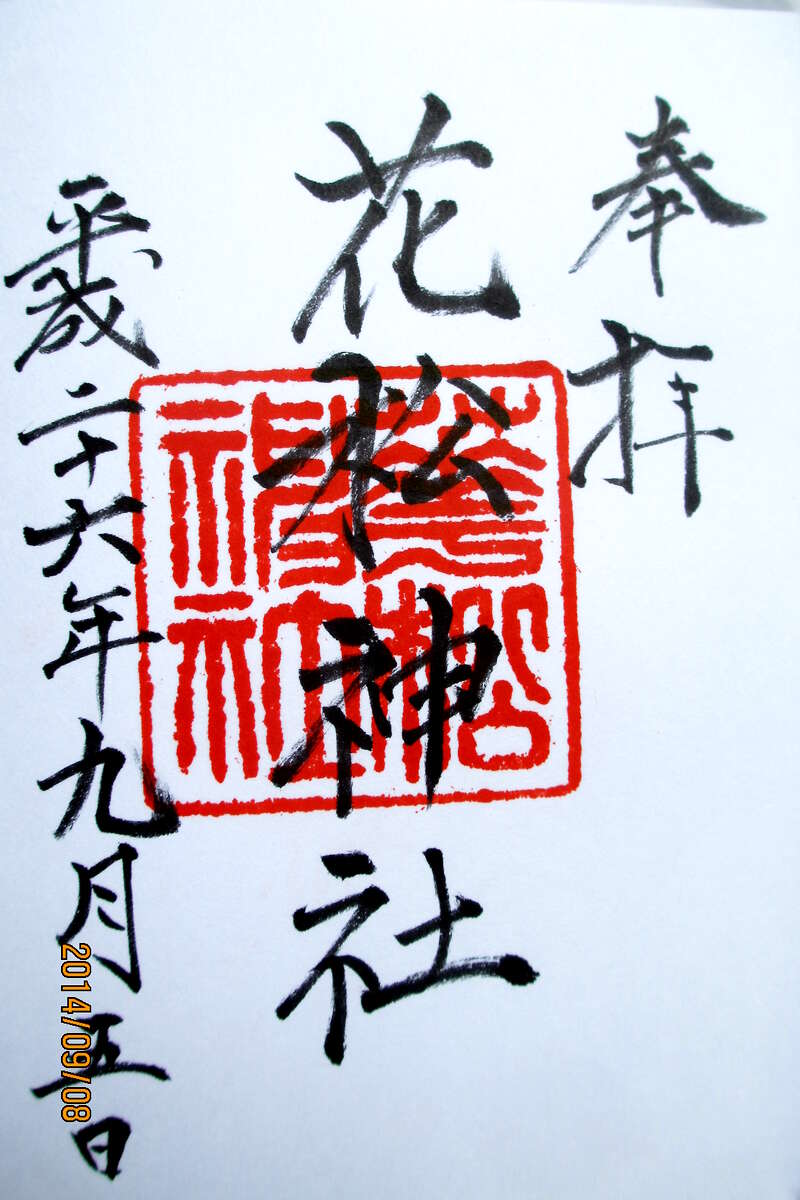 奉拝
花松神社
花松神社
平成二十六年九月五日
2014/09/08